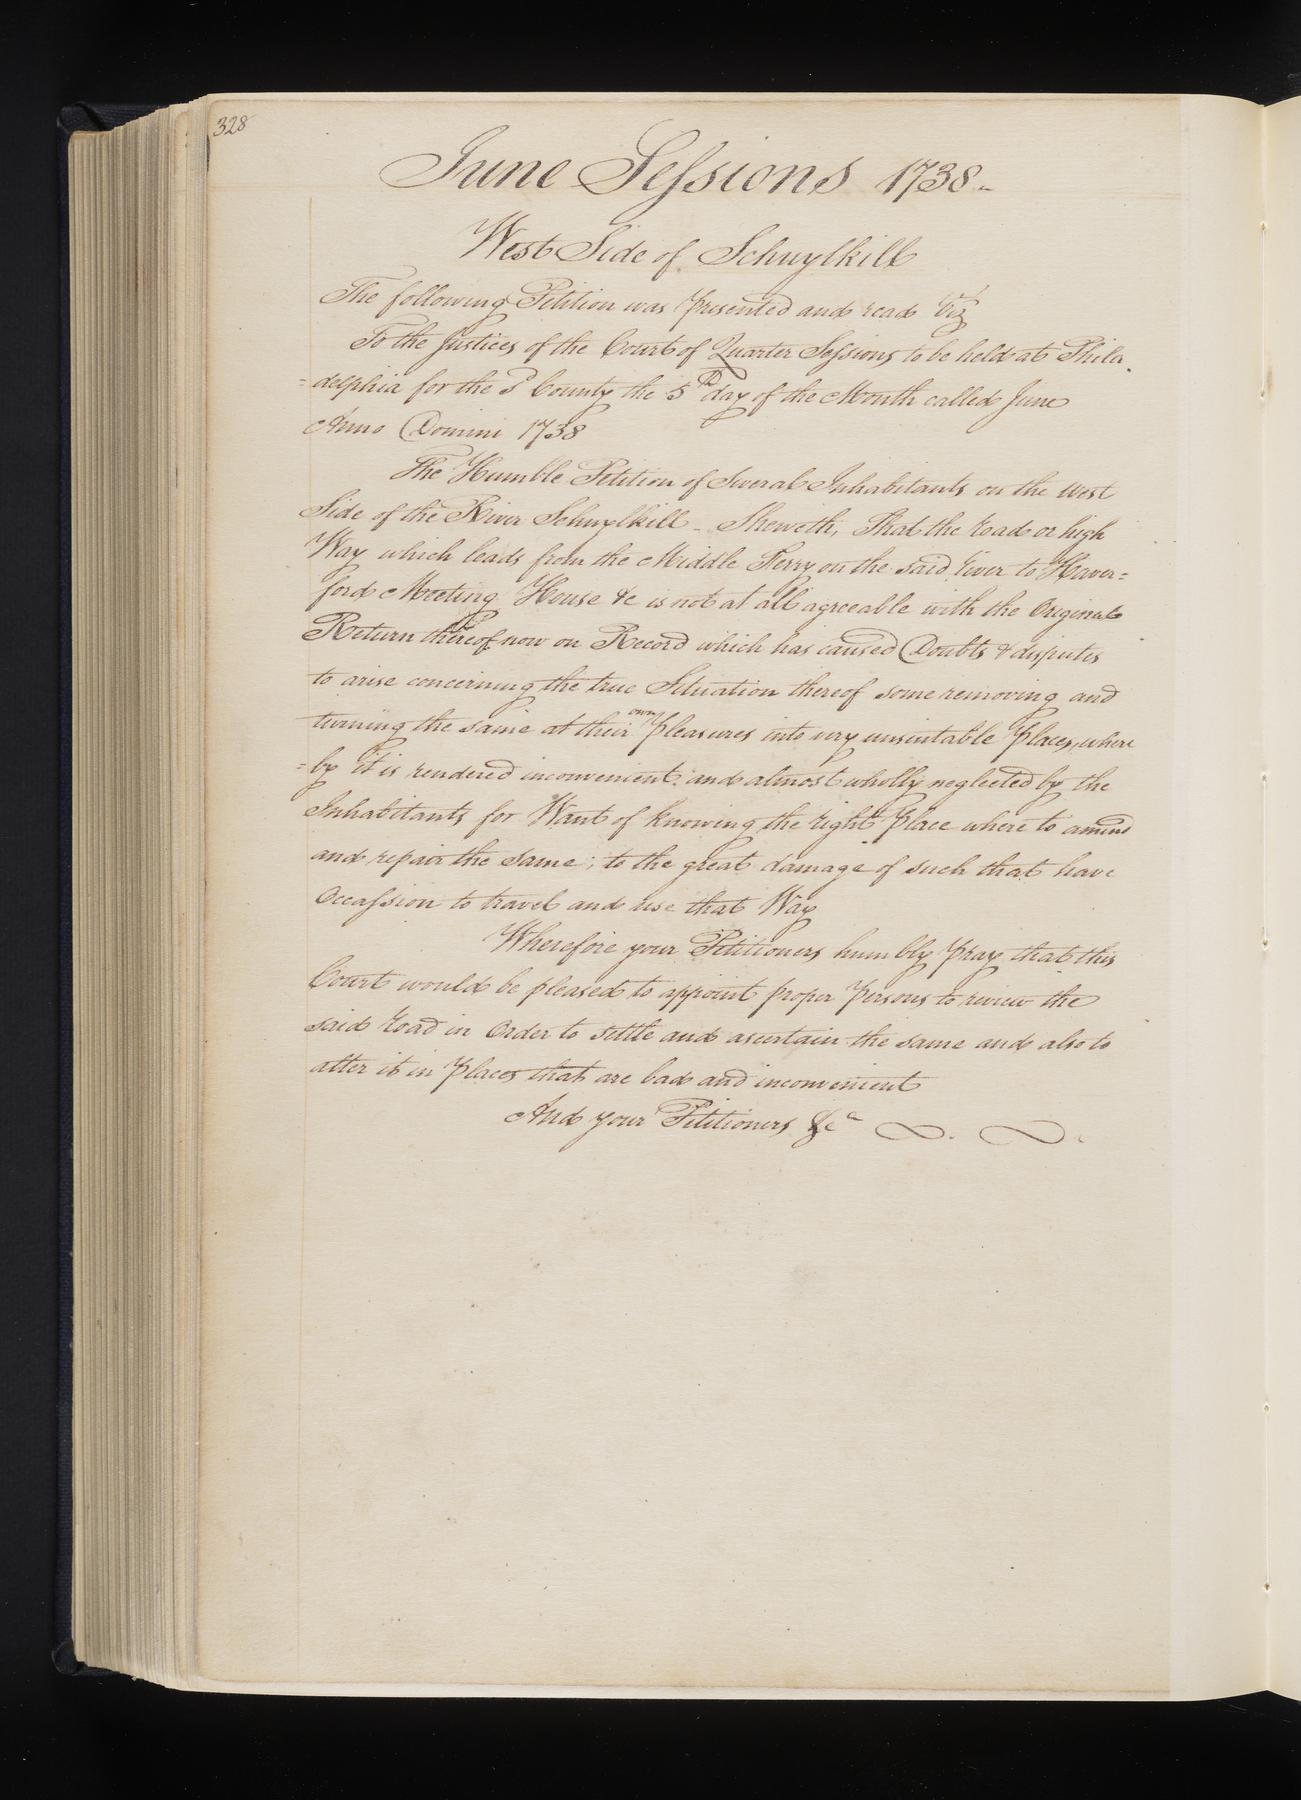 328
June Sessions 1738
West Side of Schuylkill
The following Petition was presented and read Viz
To the Justices of the Court of Quarter Sessions to be held at Phila
=delphia for the sd County the 5th day of the Month called June
Anno Domini 1738
The Humble Petition of Several Inhabitants on the West
Side of the River Schuylkill - Sheweth, That the road or high
Way which leads from the Middle Ferry on the said river to Haver=
ford Meeting House &c is not at all agreeable with the Original
Return thereof now on Record which has caused Doubts & disputes
to arise concerning the true Situation thereof some removing and
turning the same at their own pleasures into very unsuitable places, where
=by it is rendered inconvenient and almost wholly neglected by the
Inhabitants for Want of knowing the right place where to amend
and repair the same; to the great damage of such that have
Occassion to travel and use that Way
Wherefore your Petitioners humbly pray that this
Court would be pleased to appoint proper persons to review the
said road in Order to settle and ascertain the same and also to
alter it in places that are bad and inconvenient
And your Petitioners &ca